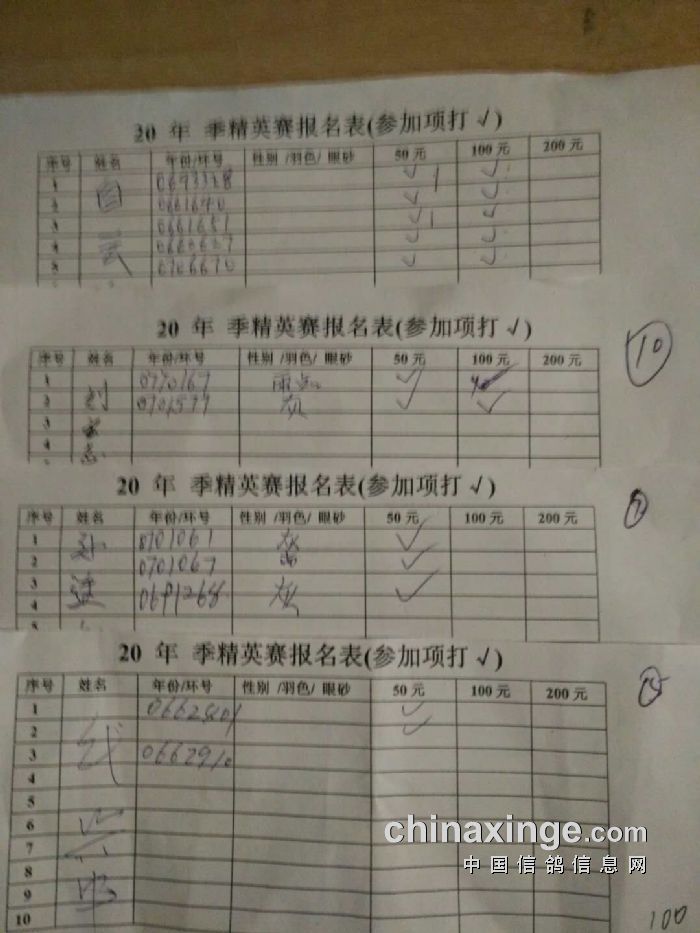 20 年 季精英赛报名表(参加项打 √)
序号 姓名 年份/环号 性别 /羽色/ 眼砂 50 元 100 元 200 元
1 0693328 √ √
2 √ √
3 0661651 √ √
4 √ √
5 0706670 √ √
20 年 季精英赛报名表(参加项打 √)
10
序号 姓名 年份/环号 性别 /羽色/ 眼砂 50 元 100 元 200 元
1 0770167 雨点 √
2 刘 0701577 灰 √ √
3
4
20 年 季精英赛报名表(参加项打 √)
序号 姓名 年份/环号 性别 /羽色/ 眼砂 50 元 100 元 200 元
1 孙 0701061 灰 √
2 0701067 √
3 0691268 灰 √
4
20 年 季精英赛报名表(参加项打 √)
序号 姓名 年份/环号 性别 /羽色/ 眼砂 50 元 100 元 200 元
1 √
2 √
3 0662910
4
5
6
7
8
9
10
chinaxinge.com
中国信鸽信息网
100